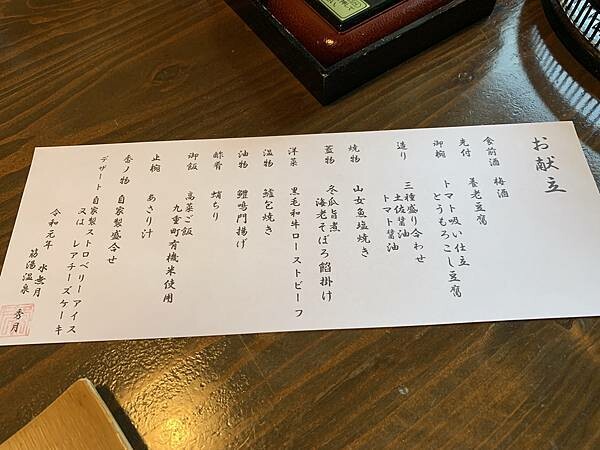 お献立
食前酒 梅酒
先付 養老豆腐
御椀 トマト吸い仕立
とうもろこし豆腐
造り 三種盛り合わせ
土佐醤油
トマト醤油
焼物 山女魚塩焼き
蓋物 冬瓜旨煮
海老そぼろ餡掛け
洋菜 黒毛和牛ローストビーフ
温物 鱸包焼き
油物 鱧鳴門揚げ
酢肴 蛸ちり
御飯 高菜ご飯
九重町有機米使用
止椀 あさり汁
香ノ物 自家製盛合せ
デザート 自家製ストロベリーアイス
又は レアチーズケーキ
令和元年 水無月
筋湯温泉 秀月